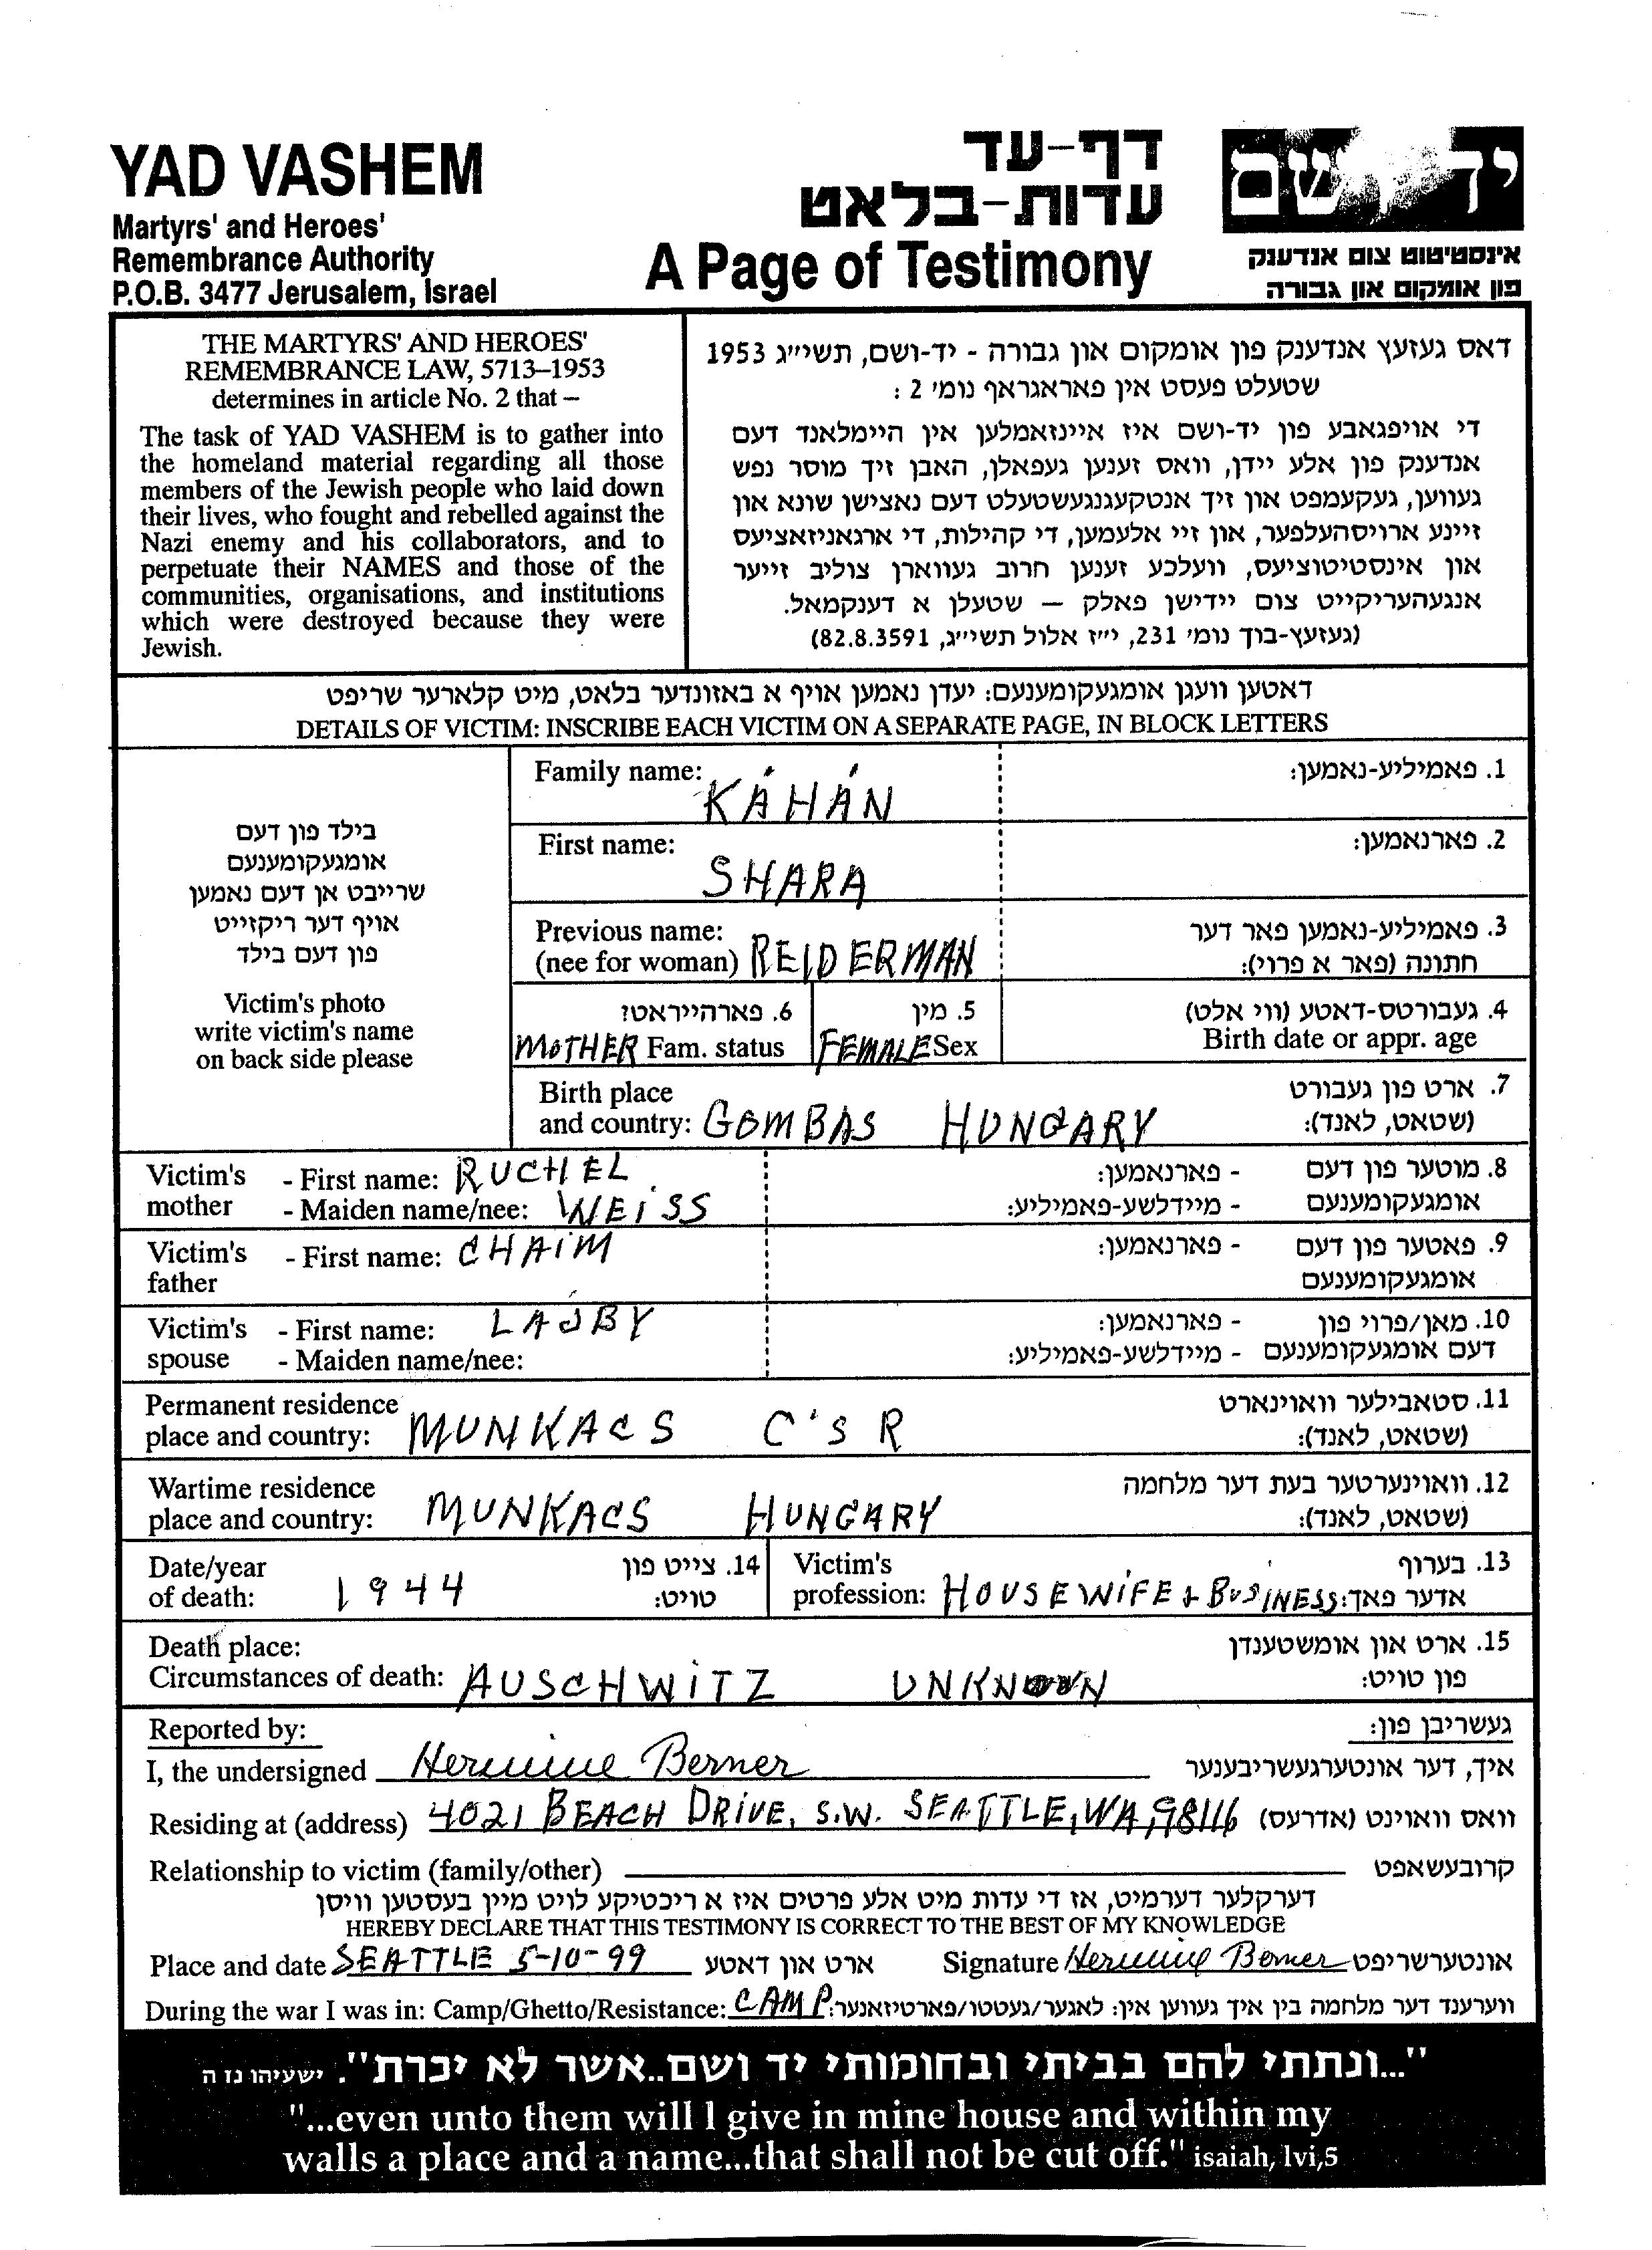 YAD VASHEM
Martyrs' and Heroes'
Remembrance Authority
P.O.B. 3477 Jerusalem, Israel
דף-עד
עדות-בלאט
A Page of Testimony
יד ושם
אינסטיטוט צום אנדענק
פון אומקום און גבורה
THE MARTYRS' AND HEROES'
REMEMBRANCE LAW, 5713–1953
determines in article No. 2 that –
The task of YAD VASHEM is to gather into
the homeland material regarding all those
members of the Jewish people who laid down
their lives, who fought and rebelled against the
Nazi enemy and his collaborators, and to
perpetuate their NAMES and those of the
communities, organisations, and institutions
which were destroyed because they were
Jewish.
דאס געזעץ אנדענק פון אומקום און גבורה - יד-ושם, תשי״ג 1953
שטעלט פעסט אין פאראגראף נומ׳ 2 :
די אויפגאבע פון יד-ושם איז איינזאמלען אין היימלאנד דעם
אנדענק פון אלע יידן, וואס זענען געפאלן, האבן זיך מוסר נפש
געווען, געקעמפט און זיך אנטקעגנגעשטעלט דעם נאצישן שונא און
זיינע ארויסהעלפער, און זיי אלעמען, די קהילות, די ארגאניזאציעס
און אינסטיטוציעס, וועלכע זענען חרוב געווארן צוליב זייער
אנגעהעריקייט צום יידישן פאלק — שטעלן א דענקמאל.
(געזעץ-בוך נומ׳ 231, י״ז אלול תשי״ג, 82.8.3591)
דאטען וועגן אומגעקומענעם: יעדן נאמען אויף א באזונדער בלאט, מיט קלארער שריפט
DETAILS OF VICTIM: INSCRIBE EACH VICTIM ON A SEPARATE PAGE, IN BLOCK LETTERS
בילד פון דעם
אומגעקומענעם
שרייבט אן דעם נאמען
אויף דער ריקזייט
פון דעם בילד
Victim's photo
write victim's name
on back side please
Family name: KÁHÁN 1. פאמיליע-נאמען:
First name: SHARA 2. פארנאמען:
Previous name: 3. פאמיליע-נאמען פאר דער
(nee for woman) REIDERMAN חתונה (פאר א פרוי):
6. פארהייראט? 5. מין 4. געבורטס-דאטע (ווי אלט)
MOTHER Fam. status FEMALE Sex Birth date or appr. age
Birth place 7. ארט פון געבורט
and country: GOMBAS HUNGARY (שטאט, לאנד):
Victim's - First name: RUCHEL - פארנאמען: 8. מוטער פון דעם
mother - Maiden name/nee: WEISS - מיידלשע-פאמיליע: אומגעקומענעם
Victim's - First name: CHAIM - פארנאמען: 9. פאטער פון דעם
father אומגעקומענעם
Victim's - First name: LAJBY - פארנאמען: 10. מאן/פרוי פון
spouse - Maiden name/nee: - מיידלשע-פאמיליע: דעם אומגעקומענעם
Permanent residence 11. סטאבילער וואוינארט
place and country: MUNKACS C'SR (שטאט, לאנד):
Wartime residence 12. וואוינערטער בעת דער מלחמה
place and country: MUNKACS HUNGARY (שטאט, לאנד):
Date/year 14. צייט פון Victim's 13. בערוף
of death: 1944 טויט: profession: HOUSEWIFE + BUSINESS אדער פאך:
Death place: 15. ארט און אומשטענדן
Circumstances of death: AUSCHWITZ UNKNOWN פון טויט:
Reported by: געשריבן פון:
I, the undersigned Hermine Berner איך, דער אונטערגעשריבענער
Residing at (address) 4021 BEACH DRIVE, S.W. SEATTLE, WA, 98116 וואס וואוינט (אדרעס)
Relationship to victim (family/other) קרובעשאפט
דערקלער דערמיט, אז די עדות מיט אלע פרטים איז א ריכטיקע לויט מיין בעסטען וויסן
HEREBY DECLARE THAT THIS TESTIMONY IS CORRECT TO THE BEST OF MY KNOWLEDGE
Place and date SEATTLE 5-10-99 ארט און דאטע Signature Hermine Berner אונטערשריפט
During the war I was in: Camp/Ghetto/Resistance: CAMP ווערענד דער מלחמה בין איך געווען אין: לאגער/געטטו/פארטיזאנער:
"...ונתתי להם בביתי ובחומותי יד ושם..אשר לא יכרת". ישעיהו נו ה
"...even unto them will I give in mine house and within my
walls a place and a name...that shall not be cut off." isaiah, lvi,5